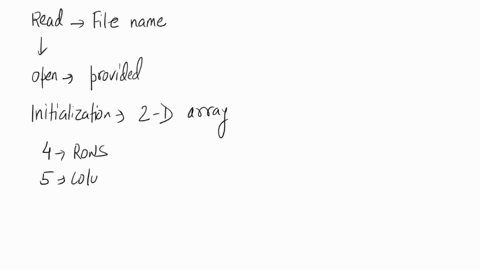 Read → File name
↓
open → provided
Initialization → 2-D array
4 → Rows
5 → Colu